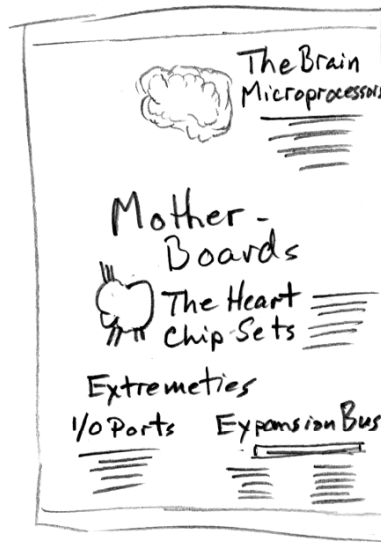 The Brain
Microprocessors
Mother-
Boards
The Heart
Chip Sets
Extremeties
I/O Ports
Expansion Bus